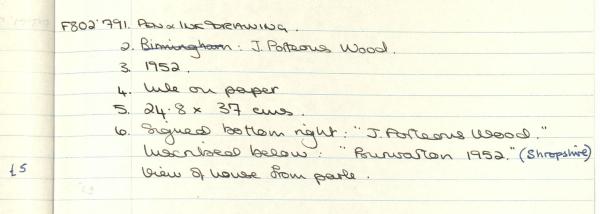 F802'791. PEN & INK DRAWING.
2. Birmingham: J. Porteous Wood.
3. 1952.
4. Ink on paper
5. 24.8 x 37 cms.
6. Signed bottom right: "J. Porteous Wood."
Inscribed below: "Purwarton 1952." (Shropshire)
£5 View of house from park.